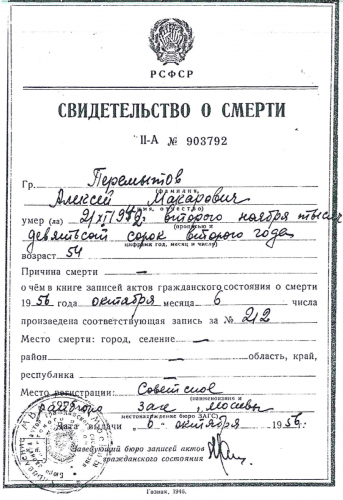 РСФСР
СВИДЕТЕЛЬСТВО О СМЕРТИ
II-А № 903792
Гр. Перемытов
(фамилия,
Алексей Макарович
имя, отчество)
умер (ла) 2/XI 1942, второго ноября тысяч
(прописью и
девятьсот сорок второго года
цифрами год, месяц и число)
возраст 54
Причина смерти —
о чём в книге записей актов гражданского состояния о смерти
1956 года октября месяца 6 числа
произведена соответствующая запись за № 212
Место смерти: город, селение —
район — область, край,
республика —
Место регистрации: Советское
(наименование и
райбюро загс, Москвы
местонахождение бюро ЗАГС)
Дата выдачи 6 октября 1956 г.
Заведующий бюро записей актов
гражданского состояния
Гознак, 1946.